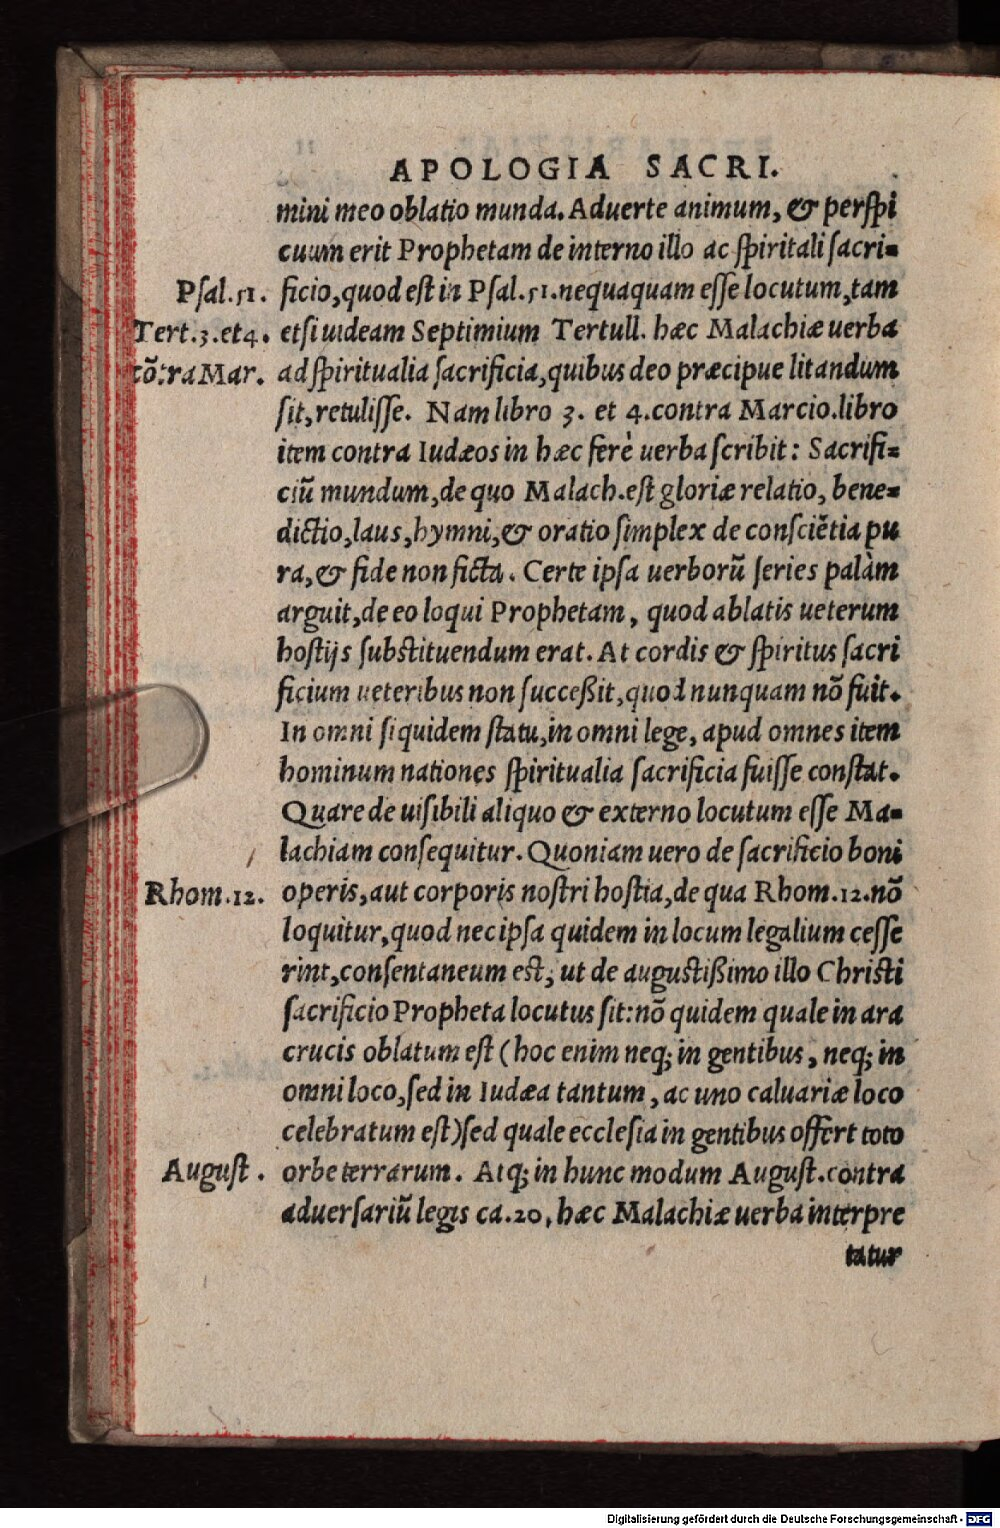 APOLOGIA SACRI.
mini meo oblatio munda. Aduerte animum, & perſpi
cuum erit Prophetam de interno illo ac ſpiritali ſacri=
Pſal.51. ficio, quod eſt in Pſal.51. nequaquam eſſe locutum, tam
Tert.3.et 4. etſi uideam Septimium Tertull. hæc Malachiæ uerba
cõtra Mar. ad ſpiritualia ſacrificia, quibus deo præcipue litandum
ſit, retuliſſe. Nam libro 3. et 4. contra Marcio. libro
item contra Iudæos in hæc ferè uerba ſcribit: Sacrifi=
ciũ mundum, de quo Malach. eſt gloriæ relatio, bene=
dictio, laus, hymni, & oratio ſimplex de conſciẽtia pu
ra, & fide non ficta. Certe ipſa uerborũ ſeries palàm
arguit, de eo loqui Prophetam, quod ablatis ueterum
hoſtijs ſubſtituendum erat. At cordis & ſpiritus ſacri
ficium ueteribus non ſucceßit, quod nunquam nõ fuit.
In omni ſiquidem ſtatu, in omni lege, apud omnes item
hominum nationes ſpiritualia ſacrificia fuiſſe conſtat.
Quare de uiſibili aliquo & externo locutum eſſe Ma=
lachiam conſequitur. Quoniam uero de ſacrificio boni
Rhom.12. operis, aut corporis noſtri hoſtia, de qua Rhom.12. nõ
loquitur, quod nec ipſa quidem in locum legalium ceſſe
rint, conſentaneum eſt, ut de auguſtißimo illo Chriſti
ſacrificio Propheta locutus ſit: nõ quidem quale in ara
crucis oblatum eſt (hoc enim neq; in gentibus, neq; in
omni loco, ſed in Iudæa tantum, ac uno caluariæ loco
celebratum eſt) ſed quale eccleſia in gentibus offert toto
Auguſt. orbe terrarum. Atq; in hunc modum Auguſt. contra
aduerſariũ legis ca.20, hæc Malachiæ uerba interpre
tatur
Digitalisierung gefördert durch die Deutsche Forschungsgemeinschaft - DFG